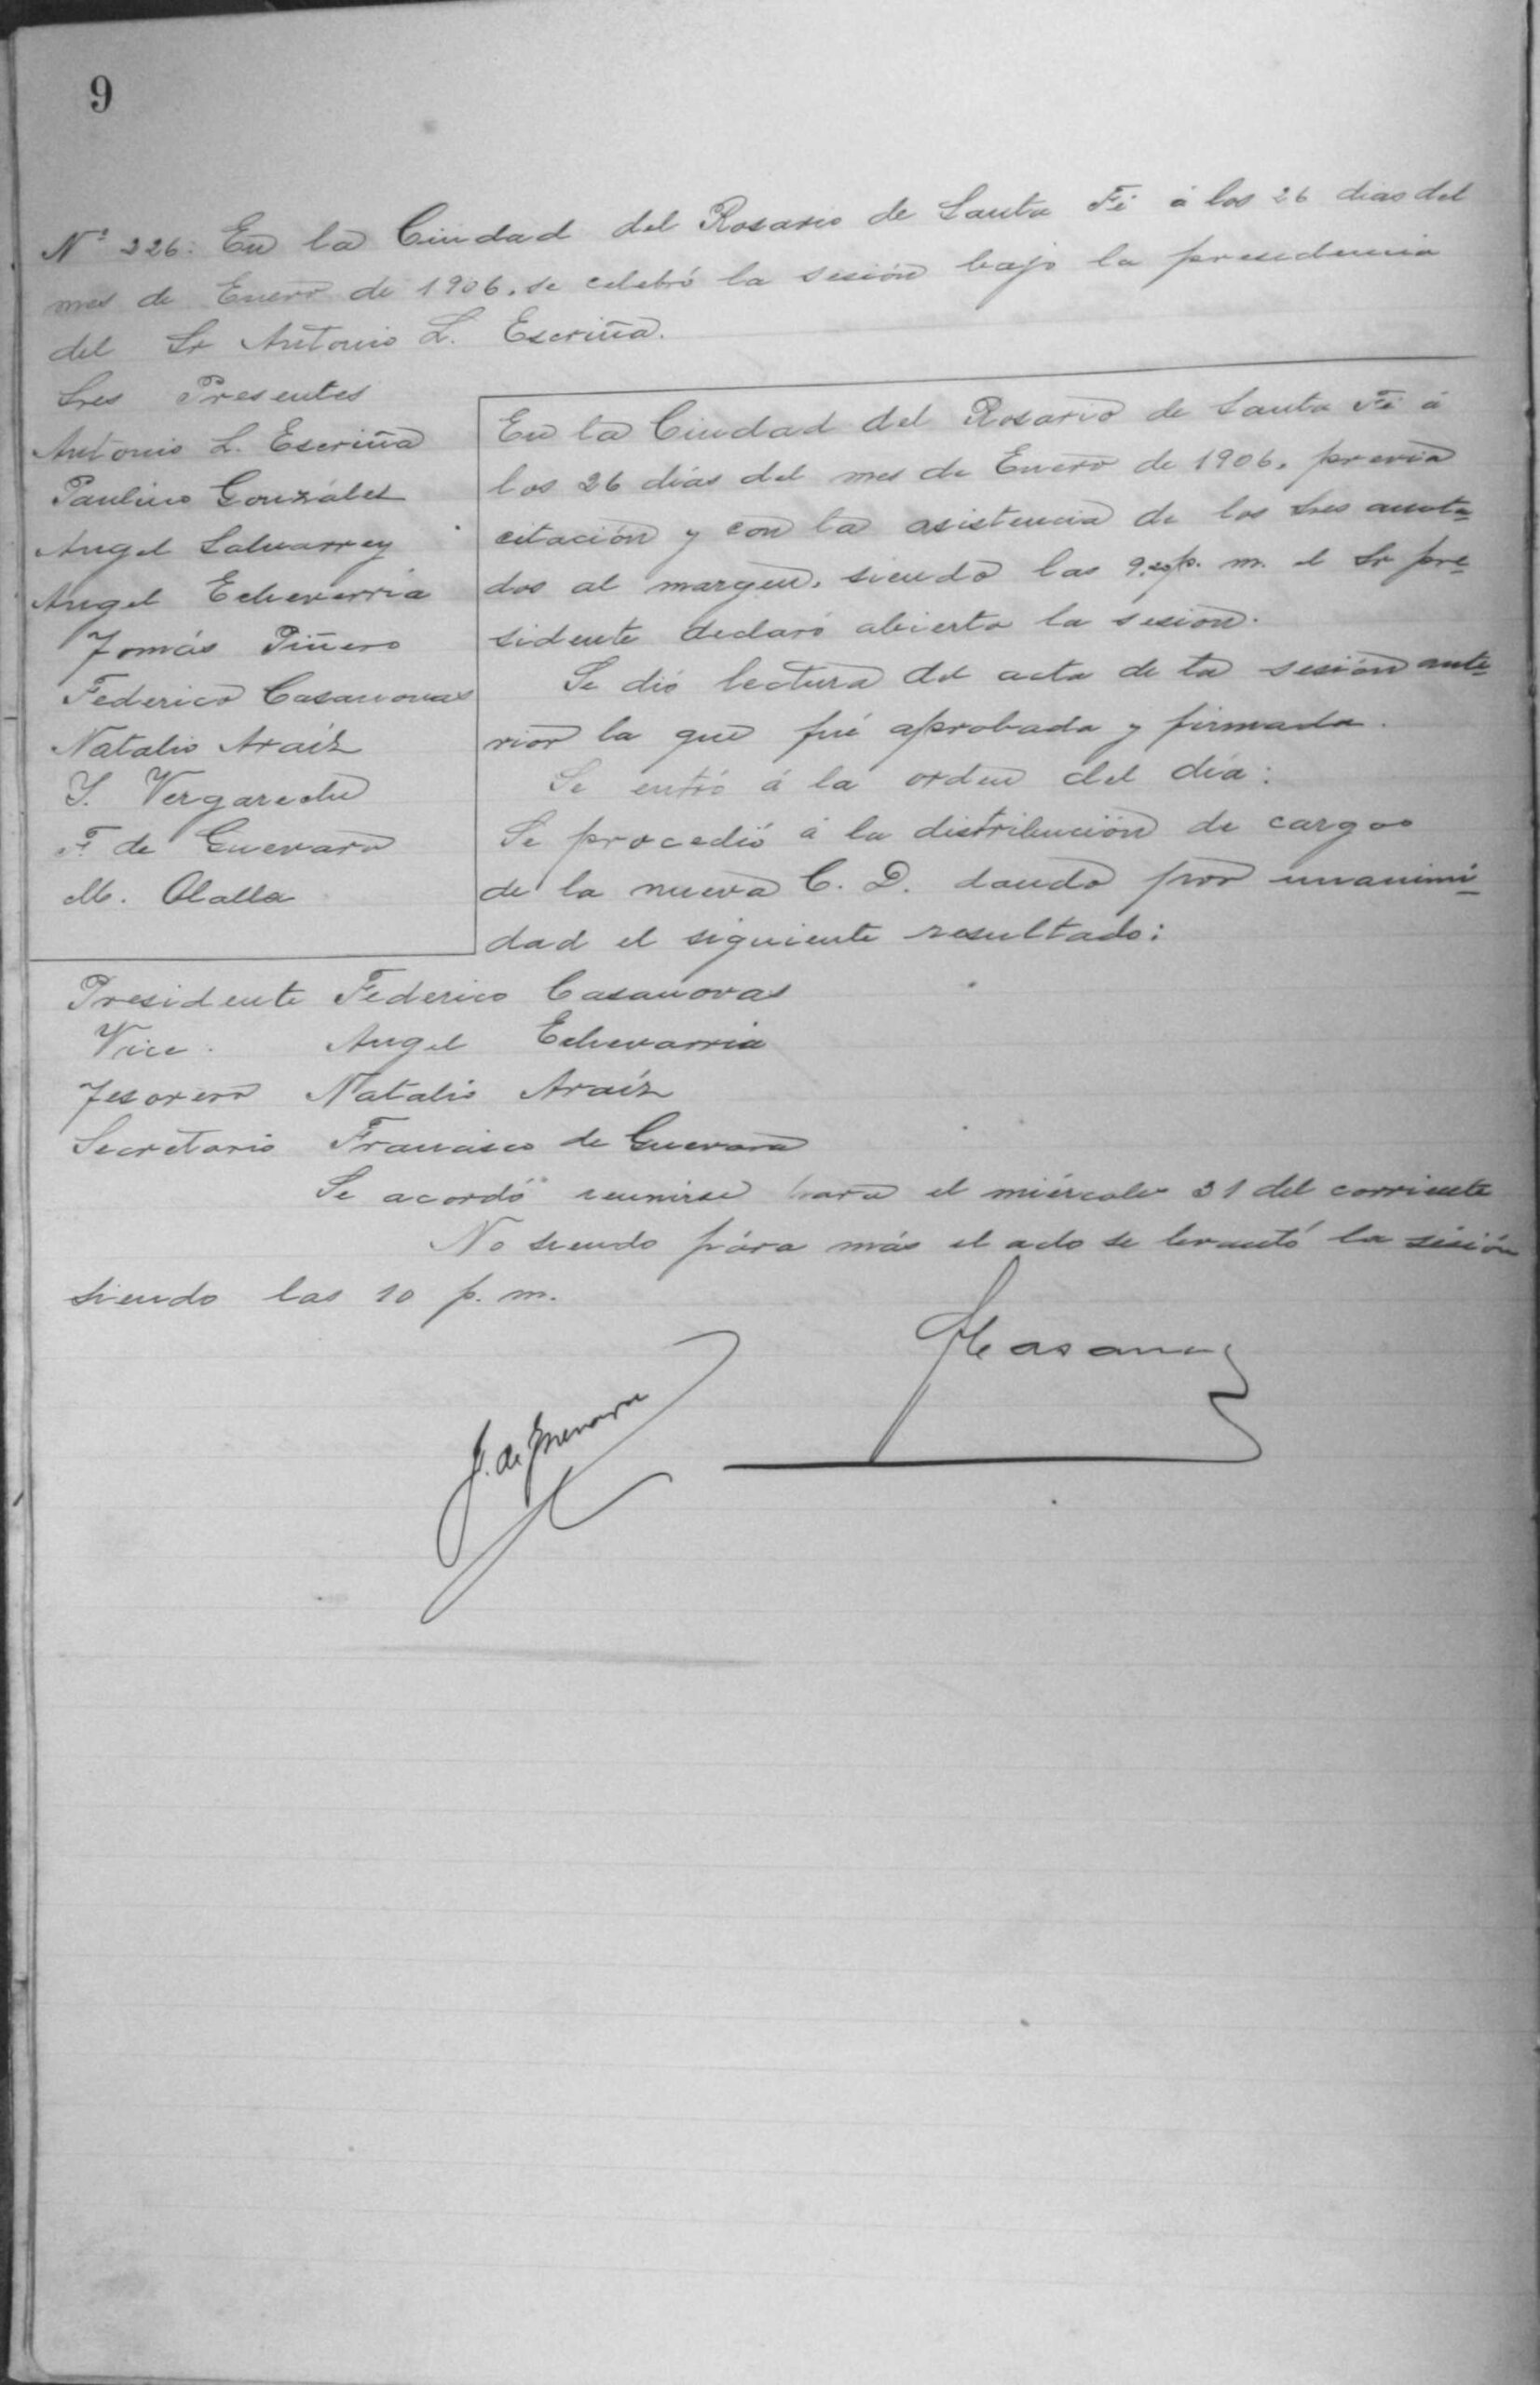 9
Nº 226. En la Ciudad del Rosario de Santa Fé á los 26 dias del
mes de Enero de 1906. se celebró la sesión bajo la presidencia
del Sr Antonio L. Escriña.
Sres Presentes
Antonio L. Escriña
Paulino González
Angel Salvarrey
Angel Echevarria
Tomás Piñero
Federico Casanovas
Natalio Araíz
F. de Guevara
M. Olalla
En la Ciudad del Rosario de Santa Fé á
los 26 días del mes de Enero de 1906, previa
citación y con la asistencia de los Sres anota-
dos al margen, siendo las p. m. el Sr pre-
sidente declaró abierta la sesion.
Se dió lectura del acta de la sesión ante-
rior la que fué aprobada y firmada.
Se entró á la orden del día:
Se procedió á la distribución de cargos
de la nueva C. D. dando por unanimi-
dad el siguiente resultado:
Presidente Federico Casanovas
Vice. Angel Echevarria
Tesorero Natalio Araíz
Secretario Francisco de Guevara
Se acordó reunirse para el miércoles 31 del corriente
No siendo pára más el acto se levantó la sesión
siendo las 10 p. m.
F. de Guevara